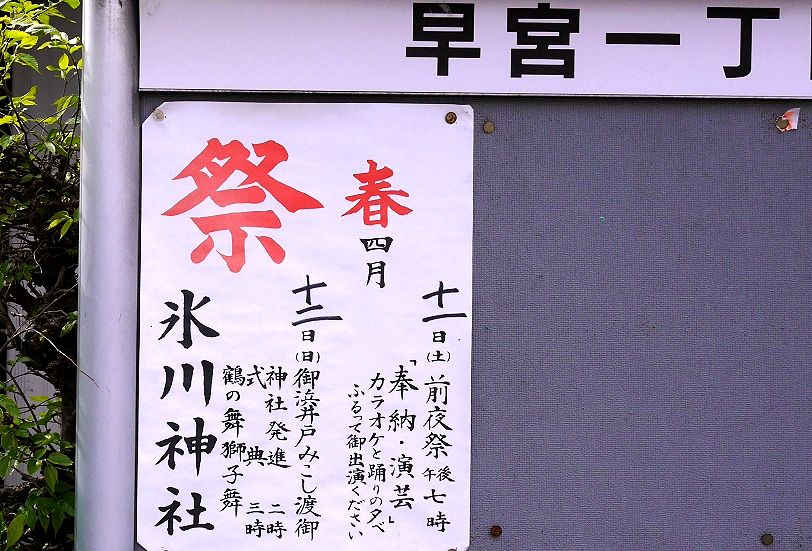 早宮一丁
春
祭
四月
十一日(土)前夜祭午後七時
「奉納・演芸」
カラオケと踊りの夕べ
ふるって御出演ください
十二日(日)御浜井戸みこし渡御
神社発進 二時
式典 三時
鶴の舞獅子舞
氷川神社